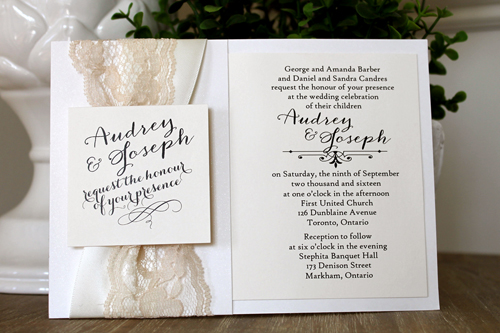 Audrey
& Joseph
request the honour
of your presence
George and Amanda Barber
and Daniel and Sandra Candres
request the honour of your presence
at the wedding celebration
of their children
Audrey
& Joseph
on Saturday, the ninth of September
two thousand and sixteen
at one o'clock in the afternoon
First United Church
126 Dunblaine Avenue
Toronto, Ontario
Reception to follow
at six o'clock in the evening
Stephita Banquet Hall
173 Denison Street
Markham, Ontario